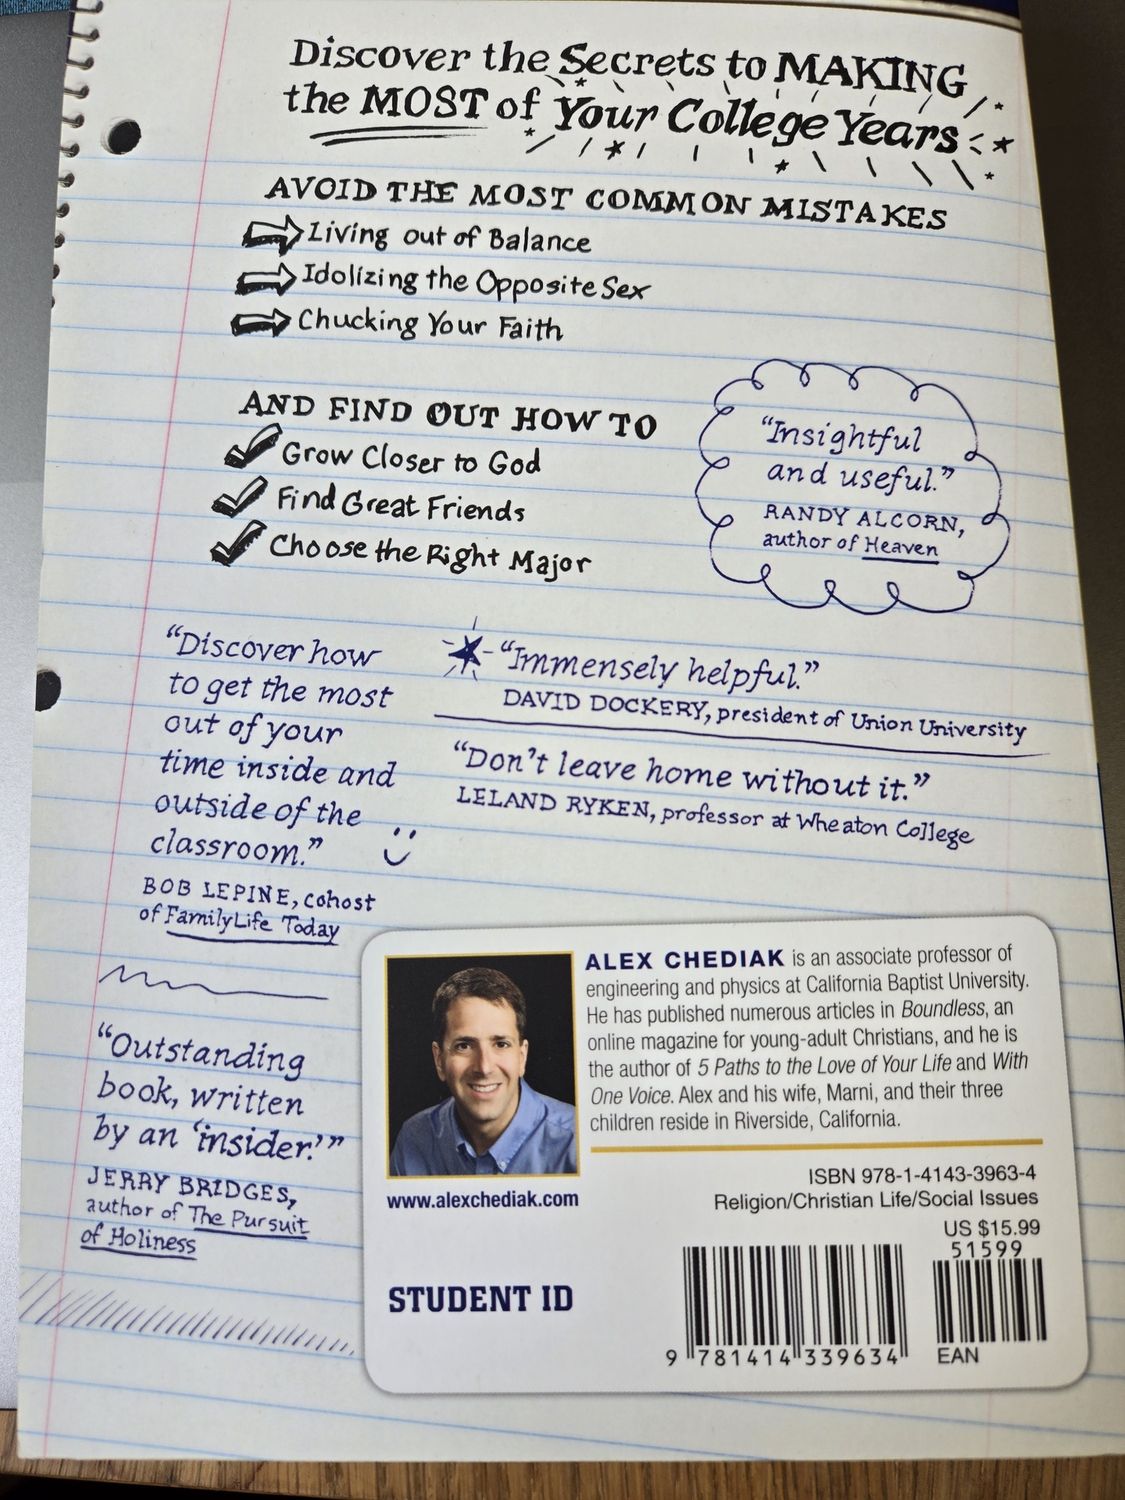 Discover the Secrets to MAKING
the MOST of Your College Years
AVOID THE MOST COMMON MISTAKES
Living out of Balance
Idolizing the Opposite Sex
Chucking Your Faith
AND FIND OUT HOW TO
Grow Closer to God
Find Great Friends
Choose the Right Major
“Insightful
and useful.”
RANDY ALCORN,
author of Heaven
“Discover how
to get the most
out of your
time inside and
outside of the
classroom.”
BOB LEPINE, cohost
of FamilyLife Today
“Immensely helpful.”
DAVID DOCKERY, president of Union University
“Don't leave home without it.”
LELAND RYKEN, professor at Wheaton College
“Outstanding
book, written
by an ‘insider.’”
JERRY BRIDGES,
author of The Pursuit
of Holiness
ALEX CHEDIAK is an associate professor of
engineering and physics at California Baptist University.
He has published numerous articles in Boundless, an
online magazine for young-adult Christians, and he is
the author of 5 Paths to the Love of Your Life and With
One Voice. Alex and his wife, Marni, and their three
children reside in Riverside, California.
www.alexchediak.com
ISBN 978-1-4143-3963-4
Religion/Christian Life/Social Issues
US $15.99
51599
STUDENT ID
9 781414 339634
EAN